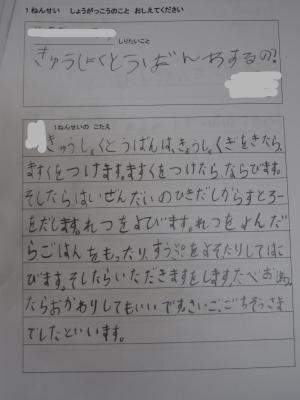 1ねんせい しょうがっこうのこと おしえてください
しりたいこと
きゅうしょくとうばんわするの?
1ねんせいの こたえ
きゅうしょくとうばんは、きゅうしょくぎをきたら、
ますくをつけます。ますくをつけたら、ならびます。
そしたらはいぜんだいのひきだしからすとろー
をだします。れつをよびます。れつをよんだ
らごはんをもったり、すうぷをよそたりしてはこ
びます。そしたらいただきますをします。たべおわっ
たらおかわりしてもいいです。さいご、ごちそうさま
でしたといいます。